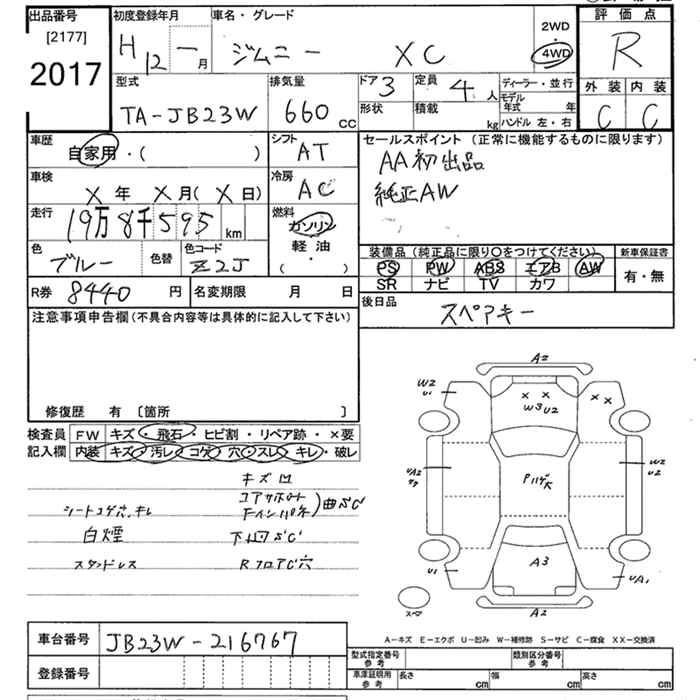 出品番号
[2177]
2017
初度登録年月
H 12 年 一 月
車名・グレード
ジムニー XC
2WD
・
4WD
評価点
R
外装 内装
C C
型式
TA-JB23W
排気量
660 cc
ドア 3
形状
定員 4 人
積載 kg
ディーラー・並行
モデル年式 年
ハンドル 左・右
車歴
自家用・( )
シフト
AT
車検
X 年 X 月 ( X 日)
冷房
AC
走行
19万8千595 km
燃料
ガソリン
軽油
( )
色
ブルー
色替
色コード
Z2J
R券 8440 円
名変期限 月 日
セールスポイント (正常に機能するものに限ります)
AA初出品
純正AW
装備品 (純正品に限り〇をつけてください)
PS PW ABS エアB AW
SR ナビ TV カワ
新車保証書
有・無
後日品
スペアキー
注意事項申告欄 (不具合内容等は具体的に記入して下さい)
修復歴 有 〔箇所 〕
検査員記入欄
FW キズ・飛石・ヒビ割・リペア跡・×要
内装 キズ・汚レ・コゲ・穴・スレ・キレ・破レ
キズ凹
コアサポート
シートコゲ穴、キレ
曲SC
白煙
下回SC
スタッドレス
RフロアC穴
A2
W2
U1
X X
W3 U2
X X
UA2
W2
U2
A3
U1
UA1
A2
スペア
A-キズ E-エクボ U-凹み W-補修跡 S-サビ C-腐食 XX-交換済
車台番号
JB23W-216767
登録番号
型式指定番号
参考
類別区分番号
参考
車庫証明用
参考
長さ cm
幅 cm
高さ cm